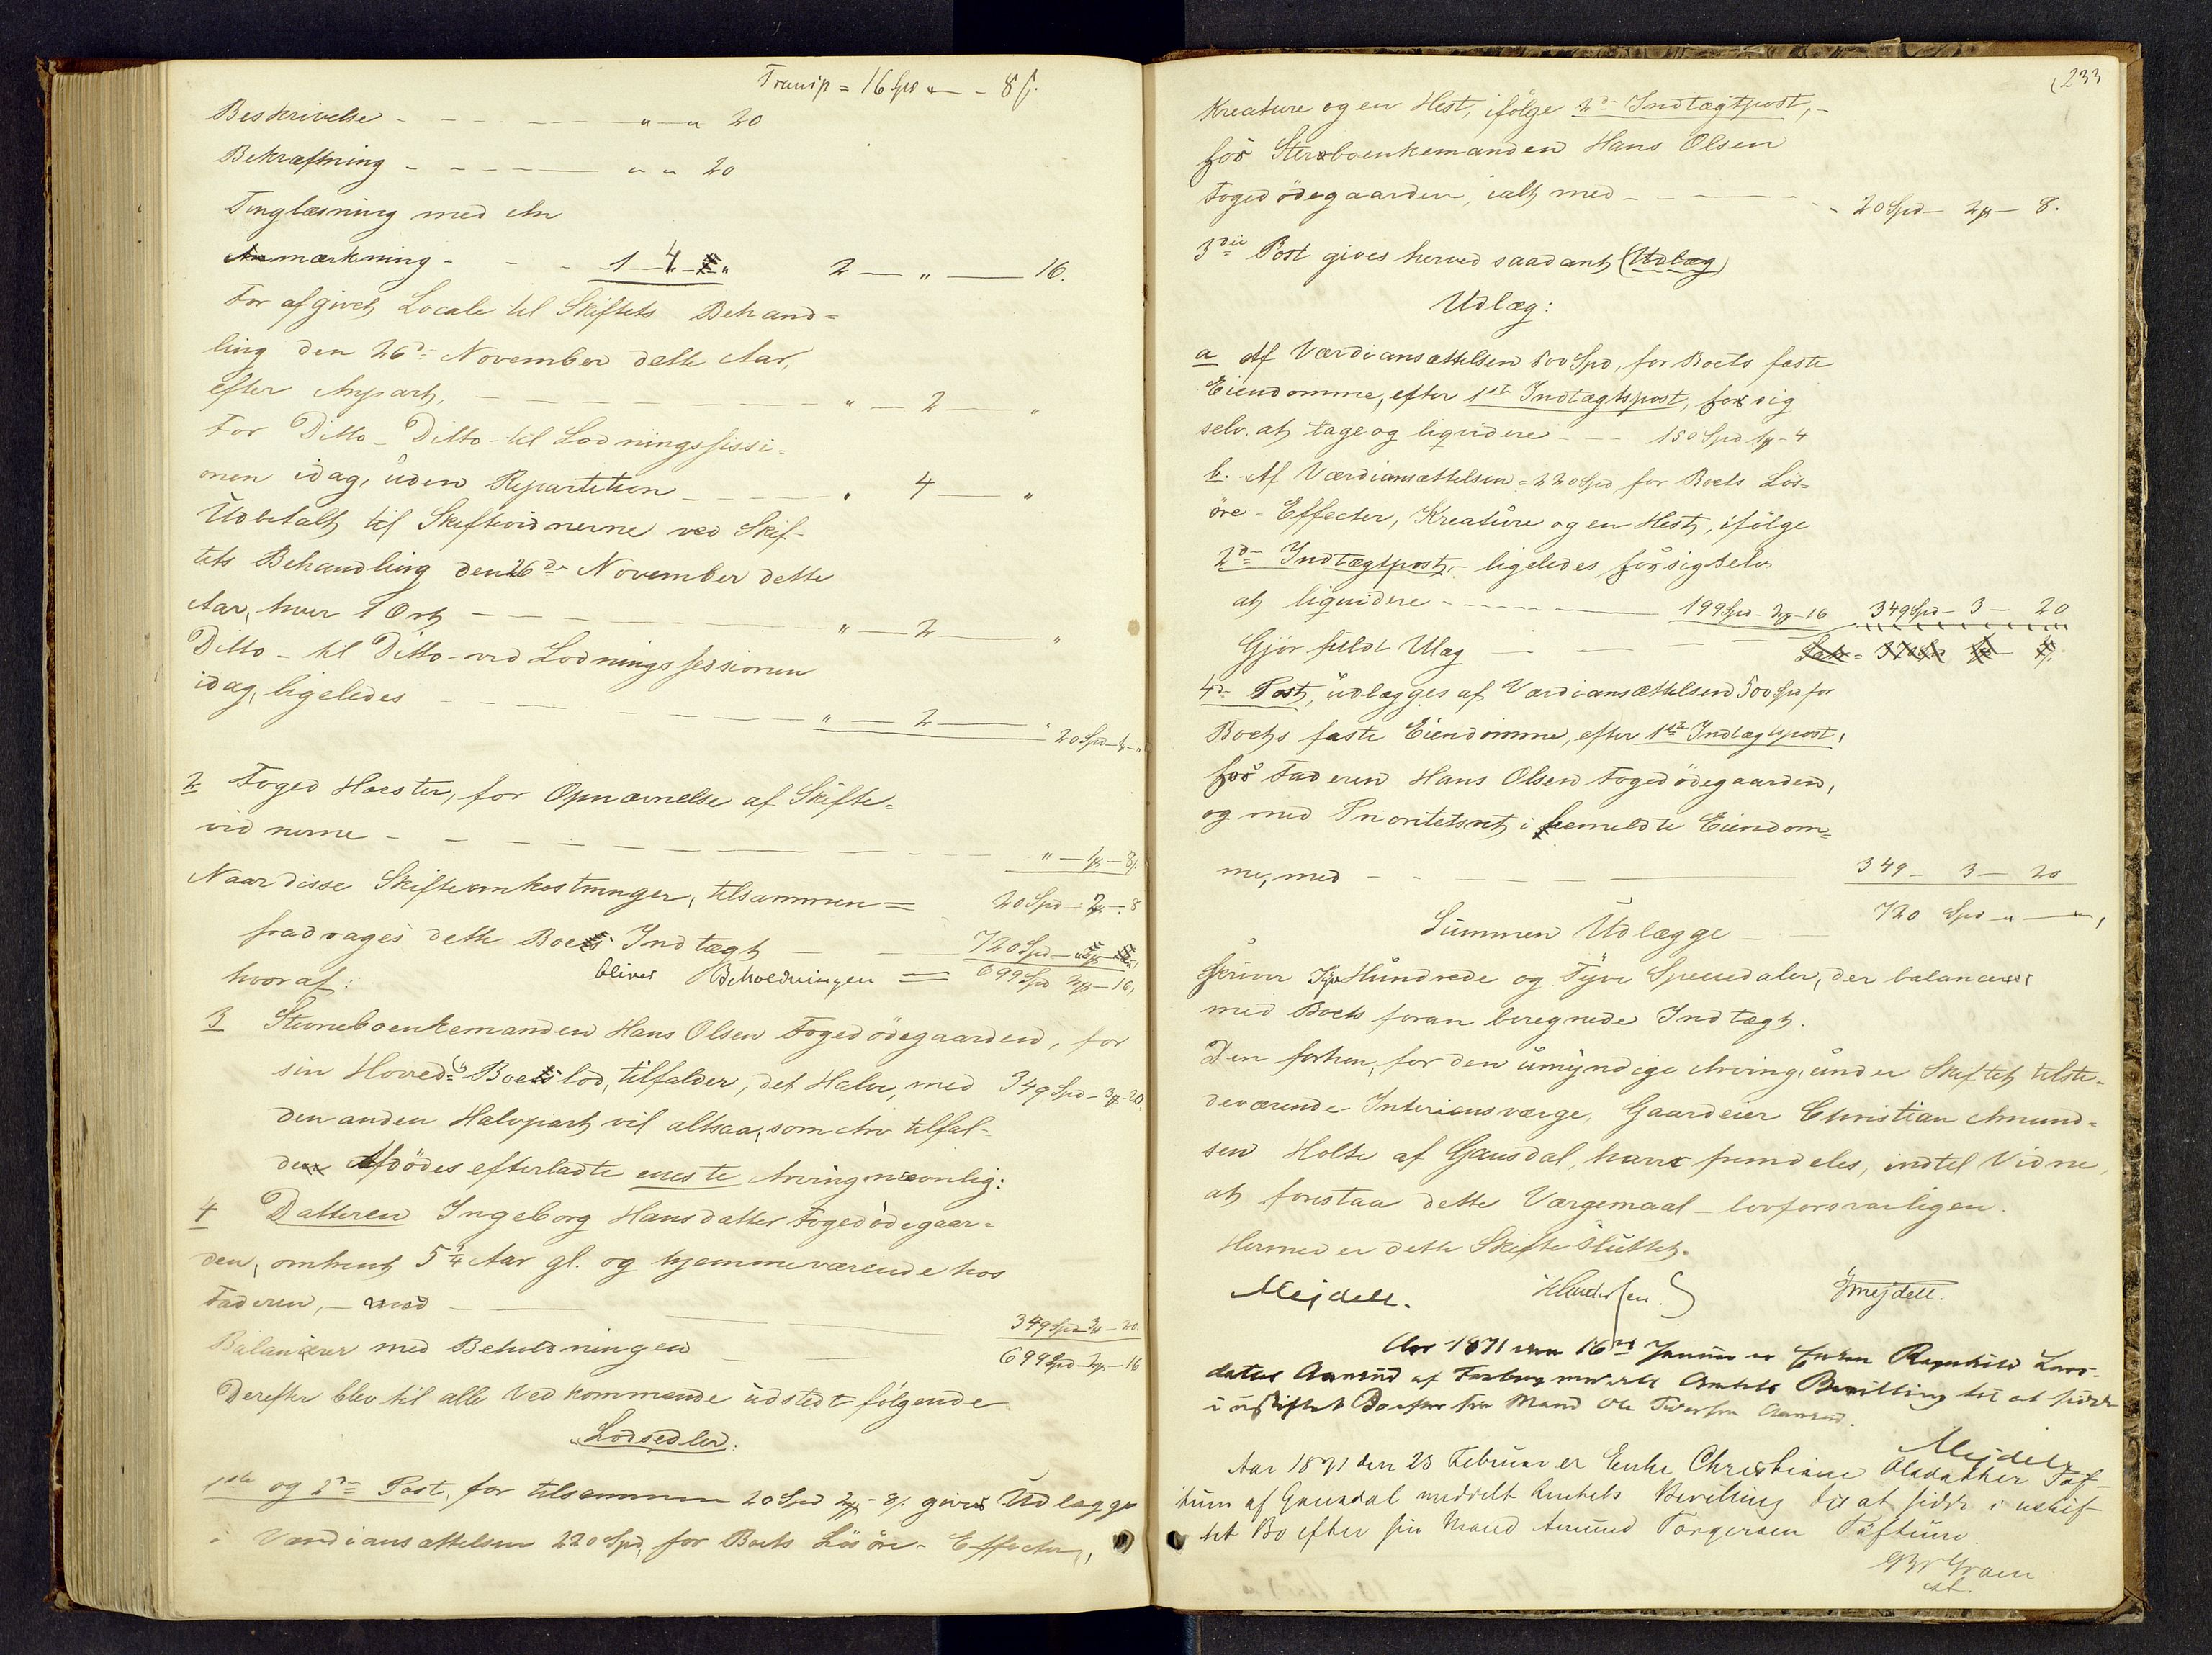 Transp = 16 Spd " - 8 ß.
Beskrivelse - - - - " - " 20
Bekræftning - - - - " " 20
Tinglæsning med An
Anmærkning - - - 1 - 4 - " 2 — " — 16.
For afgivet Locale til Skiftets Behand-
ling den 26de November dette Aar,
efter Anpart, — " - 2 — "
For Ditto - Ditto - til Lodningssessi-
onen idag, uden Repartition — " 4 — "
Udbetalt til Skiftevidnerne ved Skif-
tets Behandling den 26de November dette
Aar, hver 1 Ort — " — 2 — "
Ditto - til Ditto - ved Lodningssessionen
idag, ligeledes — " — 2 — "
2 Foged Hoester, for Opnævnelse af Skifte-
vidnerne — " — 1 - 8 ß.
Naar disse Skifteomkostninger, tilsammen = 20 Spd - 2 - 8
fradrages dette Boets Indtægt — 720 Spd
hvoraf: bliver Beholdningen = 699 Spd 2 - 16,
3 Stervboenkemanden Hans Olsen Fogedödegaarden, for
sin Hoved- Boeslod, tilfalder, det Halve, med 349 Spd - 3 - 20
den anden Halvpart vil altsaa, som Arv tilfal-
den Afdödes efterladte eneste Arving nemlig:
4 Datteren Ingeborg Hansdatter Fogedödegaar-
den, omtrent 5 1/4 Aar gl. og hjemmeværende hos
Faderen, - med — 349 Spd 3 - 20.
Balancerer med Beholdningen — 699 Spd - 2 - 16
Derefter blev til alle Vedkommende udstedt følgende
Lodsedler.
1ste og 2de Post, for tilsammen 20 Spd 2 - 8 ß. gives Udlægge
i Værdiansættelsen 220 Spd, for Boets Lösöre - Effecter,
233
Kreature og en Hest, ifölge 2de Indtægtpost, -
for Stervboenkemanden Hans Olsen
Fogedödegaarden, ialt med — 20 Spd - 2 - 8.
3die Post gives herved saadant (Udlæg)
Udlæg:
a Af Værdiansættelsen 500 Spd, for Boets faste
Eiendomme, efter 1ste Indtægtspost, for sig
selv at tage og liqvidere - - - 150 Spd 1 - 4
b. Af Værdiansættelsen = 220 Spd for Boets Lös-
öre - Effecter, Kreature og en Hest, ifölge
2de Indtægtpost, - ligeledes for sig selv
at liqvidere — 199 Spd - 2 - 16 349 Spd - 3 - 20
Gjör fuldt Ulæg —
4de Post, udlægges af Værdiansættelsen 500 Spd for
Boets faste Eiendomme, efter 1ste Indtægtspost,
for Faderen Hans Olsen Fogedödegaarden,
og med Prioritetsret i bemeldte Eiendom-
me, med — 349 - 3 - 20
Summen Udlægge — 720 Spd " — "
skriver Syv Hundrede og Tyve Speciedaler, der balancerer
med Boets foran beregnede Indtægt.
Den forhen, for den umyndige Arving, under Skiftet tilste-
deværende Interimsværge, Gaardeier Christian Amund-
sen Holte af Gausdal, havde fremdeles, indtil Vidne,
at forestaa dette Værgemaal - lovforsvarligen.
Hermed er dette Skifte Sluttet.
Mejdell. Mejdell.
Aar 1871 den 16de Januar er Enken Ragnhild Lars-
datter Aanrud af meddelt Amtets Bevilling til at sidde
i uskiftet Bo efter sin Mand Ole
Mejdell
Aar 1871 den 23 Februar er Enke Christiane Olsdatter
af Gausdal meddelt Amtets Bevilling til at sidde i uskif-
tet Bo efter sin Mand Amund Torgersen